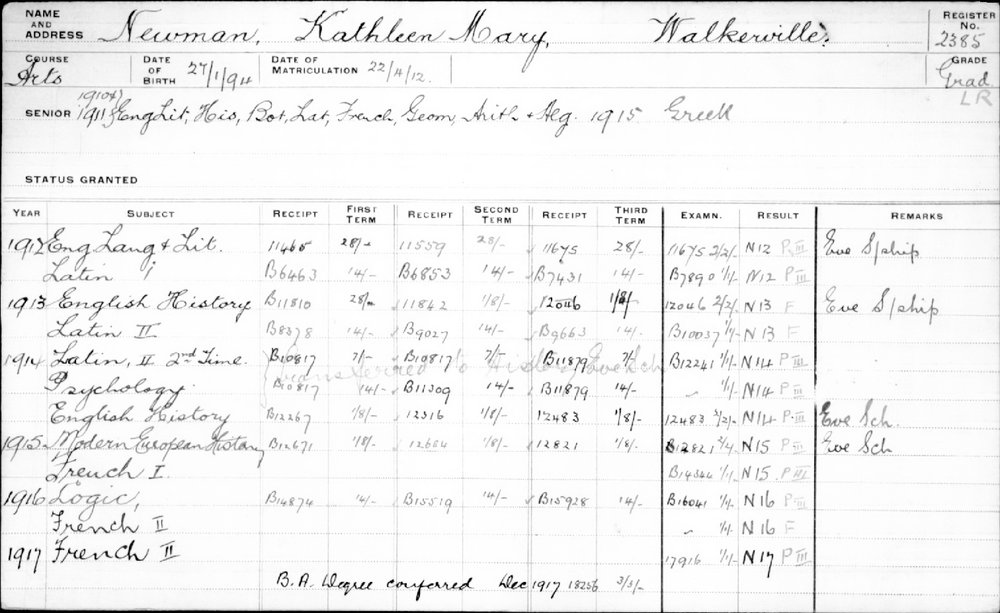 NAME AND ADDRESS Newman, Kathleen Mary, Walkerville. REGISTER No. 2385
COURSE Arts DATE OF BIRTH 27/1/94 DATE OF MATRICULATION 22/4/12. GRADE Grad
LR
1910&
SENIOR 1911} Eng Lit, His, Bot, Lat, French, Geom, Arith & Alg. 1915 Greek
STATUS GRANTED
YEAR SUBJECT RECEIPT FIRST TERM RECEIPT SECOND TERM RECEIPT THIRD TERM EXAMN. RESULT REMARKS
1912 Eng Lang & Lit. 11465 28/- 11559 28/- 11675 28/- 11675 2/2/- N12 P III Eve S/ship
Latin I B6463 14/- B6853 14/- B7431 14/- B7890 1/1/- N12 P III
1913 English History B11810 28/- 11842 1/8/- 12046 1/8/- 12046 2/2/- N13 F Eve S/ship
Latin II B8378 14/- B9027 14/- B9663 14/- B10037 1/1/- N13 F
1914 Latin, II 2nd Time. B10817 7/- B10817 7/- B11879 7/- B12241 1/1/- N14 P III
transferred to History Eve Sch
Psychology B10817 14/- B11309 14/- B11879 14/- " 1/1/- N14 P II
English History B12267 1/8/- 12316 1/8/- 12483 1/8/- 12483 2/2/- N14 P III Eve Sch.
1915 Modern European History B12671 1/8/- 12684 1/8/- 12821 1/8/- B12821 2/2/- N15 P III Eve Sch
French I. B14344 1/1/- N15 P III
1916 Logic, B14874 14/- B15519 14/- B15928 14/- B16041 1/1/- N16 P III
French II " 1/1/- N16 F
1917 French II 17916 1/1/- N17 P III
B.A. Degree conferred Dec 1917 18256 3/3/-